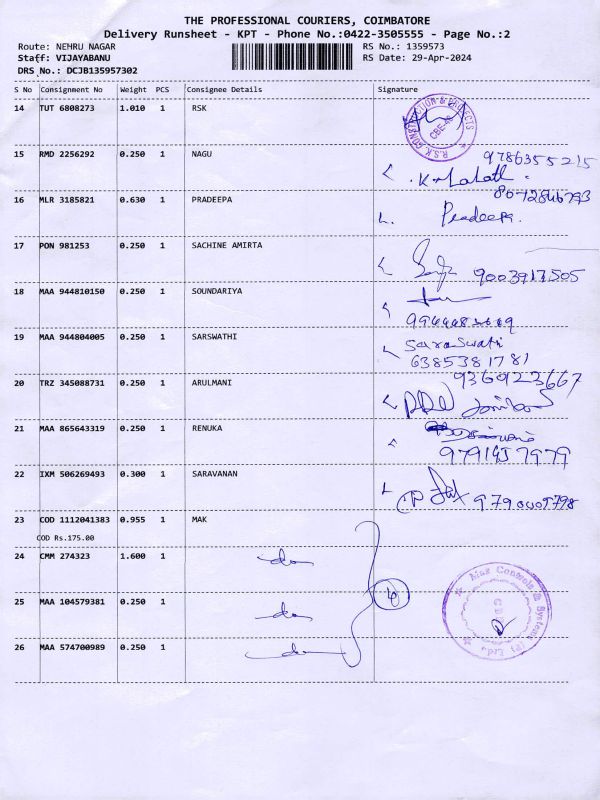 THE PROFESSIONAL COURIERS, COIMBATORE
Delivery Runsheet - KPT - Phone No.:0422-3505555 - Page No.:2
Route: NEHRU NAGAR RS No.: 1359573
Staff: VIJAYABANU RS Date: 29-Apr-2024
DRS No.: DCJB135957302
S No Consignment No Weight PCS Consignee Details Signature
14 TUT 6808273 1.010 1 RSK
R.S.K. CONSTRUCTION & PROJECTS
15 RMD 2256292 0.250 1 NAGU
9786355215
16 MLR 3185821 0.630 1 PRADEEPA
8072846793
Pradeepa.
17 PON 981253 0.250 1 SACHINE AMIRTA
9003917505
18 MAA 944810150 0.250 1 SOUNDARIYA
19 MAA 944804005 0.250 1 SARSWATHI
Saraswati
6385381781
20 TRZ 345088731 0.250 1 ARULMANI
9360923667
21 MAA 865643319 0.250 1 RENUKA
9791457979
22 IXM 506269493 0.300 1 SARAVANAN
23 COD 1112041383 0.955 1 MAK
COD Rs.175.00
24 CMM 274323 1.600 1 do
25 MAA 104579381 0.250 1 do
26 MAA 574700989 0.250 1 do
Mak Controls & Systems (P) Ltd.